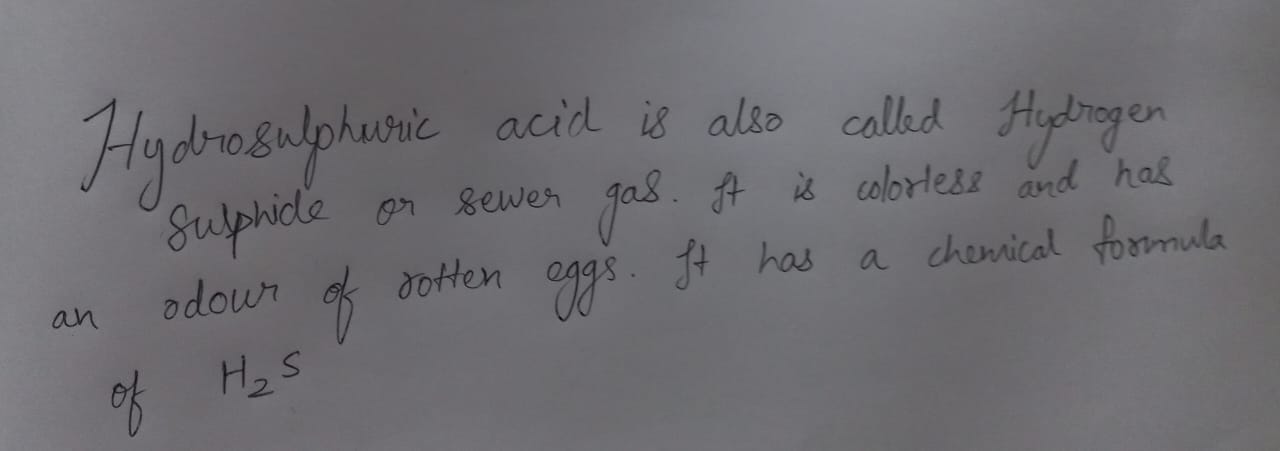 Hydrosulphuric acid is also called Hydrogen
Sulphide or sewer gas. It is colorless and has
an odour of rotten eggs. It has a chemical formula
of H₂S